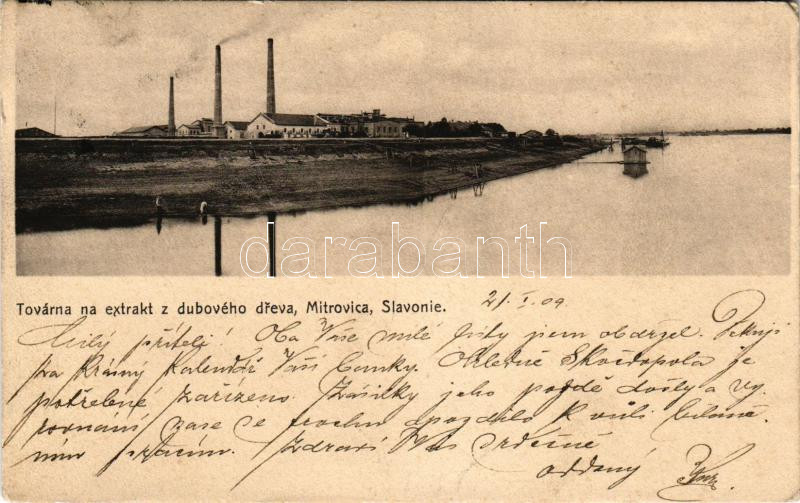 darabanth
Továrna na extrakt z dubového dřeva, Mitrovica, Slavonie.
21. I. 09
Milý příteli! Oba Vaše milé listy jsem obdržel. Děkuji
za krásný kalendář Vaší banky. Ohledně Skočdopola je
potřebné zařízeno. Zásilky jeho pozdě došly a vy
rovnání zase se trochu opozdilo k vůli bilanč
ním pracím. Zdraví Vás srdečně
oddaný